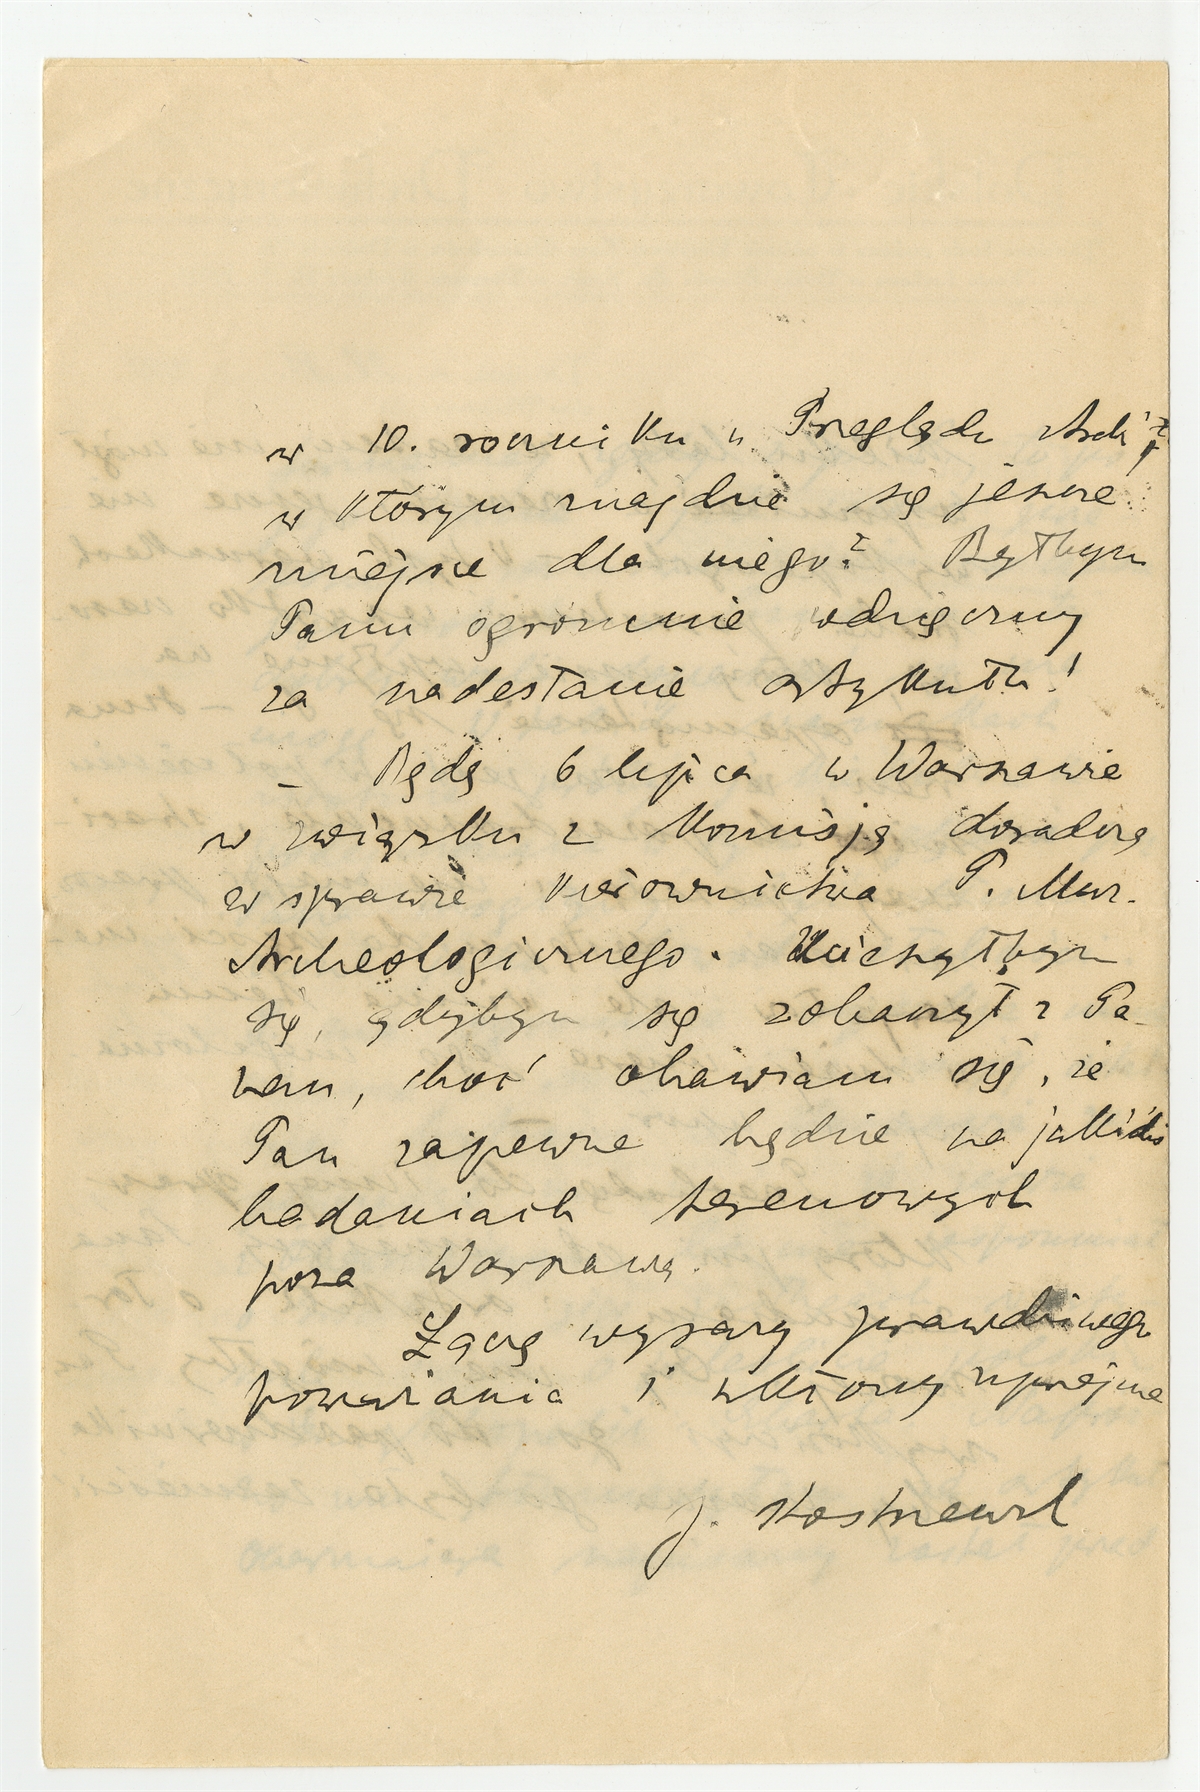 w 10. roczniku „Przeglądu Arch."?,
w którym znajdzie się jeszcze
miejsce dla niego? Byłbym
Panu ogromnie wdzięczny
za nadesłanie artykułu!
– Będę 6 lipca w Warszawie
w związku z komisją doradczą
w sprawie kierownictwa P. Muz.
Archeologicznego. Ucieszyłbym
się, gdybym się zobaczył z Pa-
nem, choć obawiam się, że
Pan zapewne będzie na jakichś
badaniach terenowych
poza Warszawą.
Łączę wyrazy prawdziwego
poważania i ukłony uprzejme
J. Kostrzewski